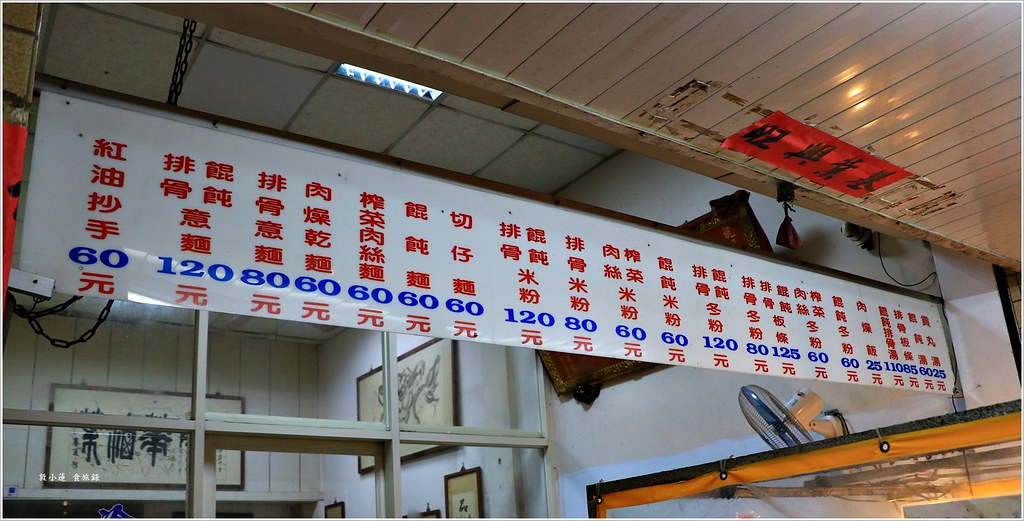 紅油抄手60元
排骨餛飩意麵120元
排骨意麵80元
肉燥乾麵60元
榨菜肉絲麵60元
餛飩麵60元
切仔麵60元
排骨餛飩米粉120元
排骨米粉80元
榨菜肉絲米粉60元
餛飩米粉60元
排骨餛飩冬粉120元
排骨冬粉80元
排骨餛飩板條125元
榨菜肉絲冬粉60元
餛飩冬粉60元
肉燥飯25元
餛飩排骨湯110元
排骨板條85元
餛飩湯60元
貢丸湯25元
敦小蓮 食旅錄